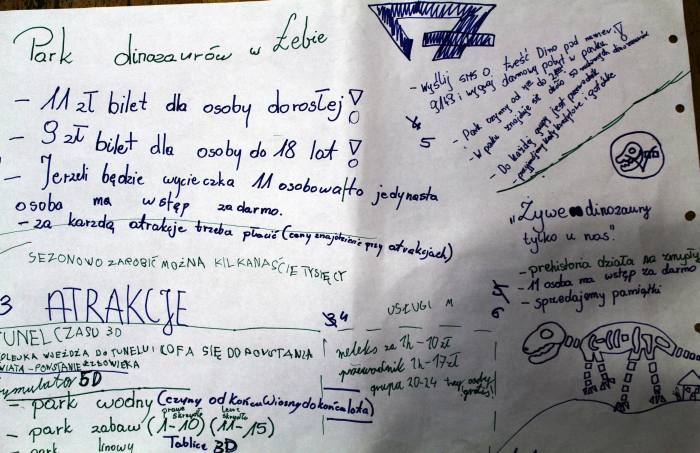 Park dinozaurów w Łebie
- 11 zł bilet dla osoby dorosłej!
- 9 zł bilet dla osoby do 18 lat!
- Jerzeli będzie wycieczka 11 osobowa, to jedynasta
osoba ma wstęp za darmo.
- za karzdą atrakcje trzeba płacić (ceny znajdziecie przy atrakcjach)
SEZONOWO ZAROBIĆ MOŻNA KILKANAŚCIE TYSIĘCY
3 ATRAKCJE
TUNEL CZASU 3D
KOLEJKA WJEŻDŻA DO TUNELU I COFA SIĘ DO POWSTANIA
ŚWIATA - POWSTANIE CZŁOWIEKA
Symulator 5D
- park wodny (czynny od końcu wiosny do końca lata)
- park zabaw (1-10) (11-15)
prawe skrzydło
lewe skrzydło
- park linowy Tablice 3D
4
USŁUGI M
meleks za 1h - 10 zł
przewodnik 1h - 17 zł
grupa 20-24 osoby
gratis!
- Wyślij SMS o treść Dino pod numer
9143 i wygraj darmowy pobyt w parku!
- Park czynny od
- W parku znajduje się około 50
- Do każdej grupy jest przewodnik
- przyjmujemy karty kredytowe i gotówkę
4
5
„Żywe dinozaury
tylko u nas."
- prehistoria działa na zmysły
- 11 osoba ma wstęp za darmo
- sprzedajemy pamiątki
6